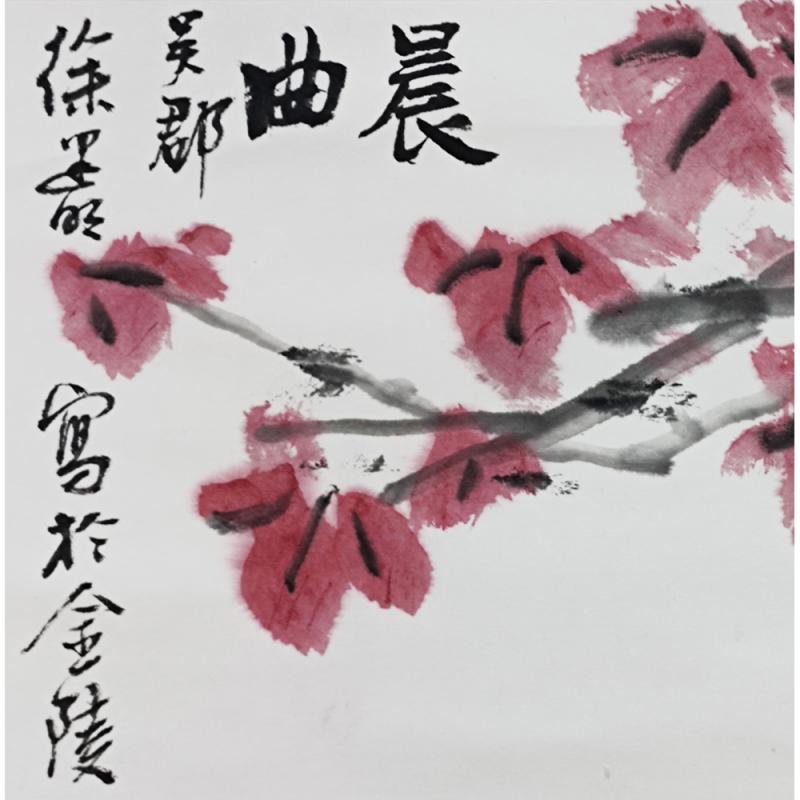 晨曲
吴郡
徐寫於金陵